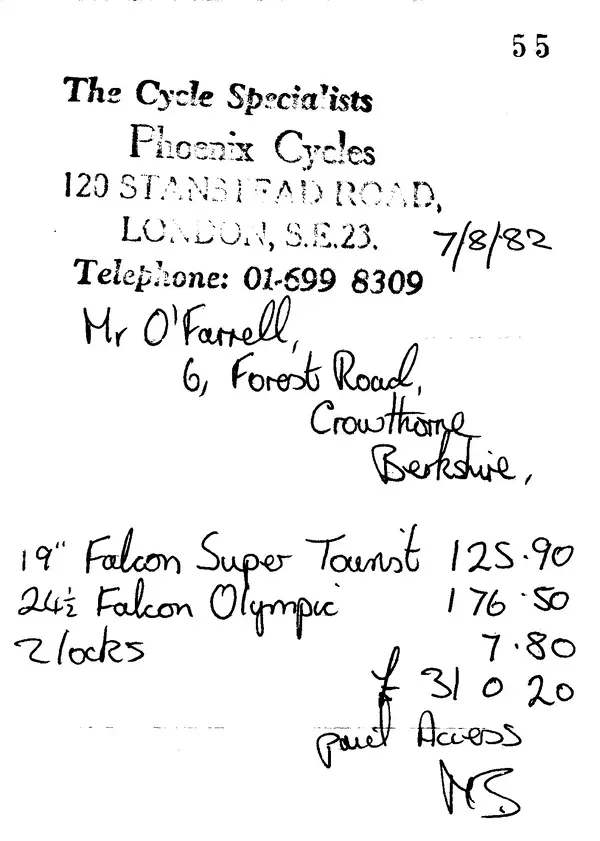 55
The Cycle Specialists
Phoenix Cycles
120 STANSTEAD ROAD,
LONDON, S.E.23.
7/8/82
Telephone: 01-699 8309
Mr O'Farrell,
6, Forest Road,
Crowthorne
Berkshire,
19" Falcon Super Tourist 125.90
24½ Falcon Olympic 176.50
2 locks 7.80
£ 310 20
paid Access
MB